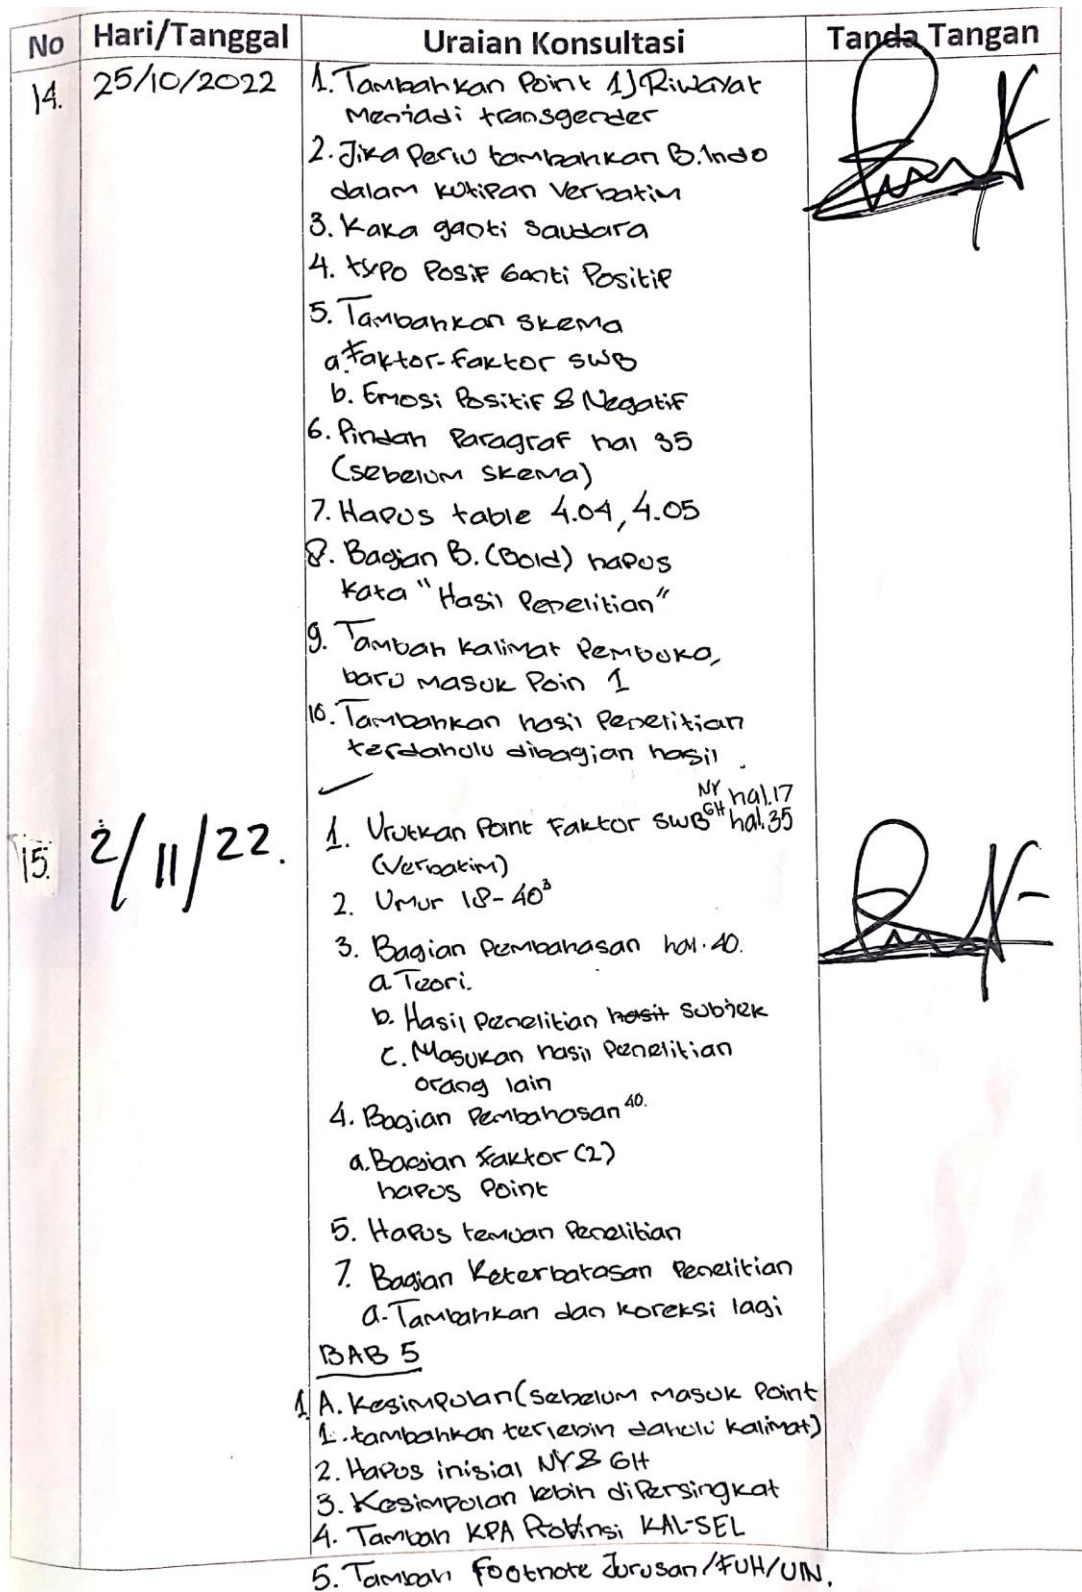 No Hari/Tanggal Uraian Konsultasi Tanda Tangan
14. 25/10/2022 1. Tambahkan Point 1) Riwayat
Menjadi transgender
2. Jika Perlu tambahkan B.Indo
dalam kutipan Verbatim
3. Kaka ganti Saudara
4. typo Posif Ganti Positif
5. Tambahkan skema
a. Faktor-faktor SWB
b. Emosi Positif & Negatif
6. Pindah Paragraf hal 35
(sebelum skema)
7. Hapus table 4.04, 4.05
8. Bagian B. (Bold) hapus
kata "Hasil Penelitian"
9. Tambah kalimat Pembuka,
baru masuk Poin 1
10. Tambahkan hasil Penelitian
terdahulu dibagian hasil.
15. 2/11/22. 1. Urutkan Point Faktor SWB NY hal.17 GH hal.35
(Verbatim)
2. Umur 18-40³
3. Bagian Pembahasan hal. 40.
a. Teori.
b. Hasil Penelitian hasil Subjek
c. Masukan hasil Penelitian
orang lain
4. Bagian Pembahasan 40.
a. Bagian Faktor (2)
hapus Point
5. Hapus temuan Penelitian
7. Bagian Keterbatasan Penelitian
a. Tambahkan dan koreksi lagi
BAB 5
1. A. Kesimpulan (sebelum masuk Point
1. tambahkan terlebih dahulu kalimat)
2. Hapus inisial NY & GH
3. Kesimpulan lebih dipersingkat
4. Tambah KPA Provinsi KAL-SEL
5. Tambah Footnote Jurusan/FUH/UIN.